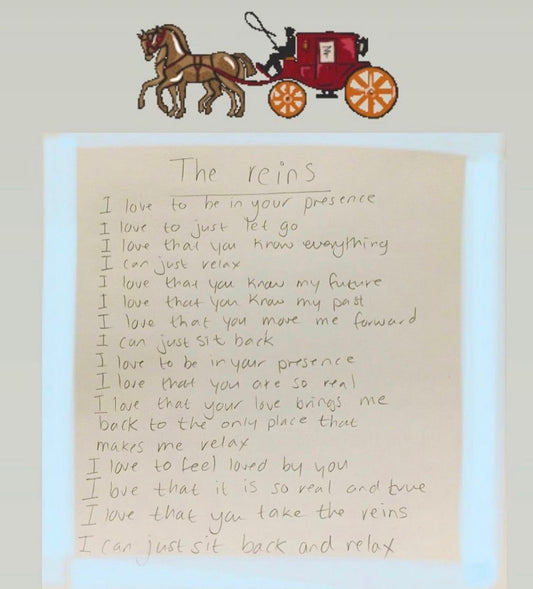 The reins
I love to be in your presence
I love to just let go
I love that you know everything
I can just relax
I love that you know my future
I love that you know my past
I love that you move me forward
I can just sit back
I love to be in your presence
I love that you are so real
I love that your love brings me
back to the only place that
makes me relax
I love to feel loved by you
I love that it is so real and true
I love that you take the reins
I can just sit back and relax